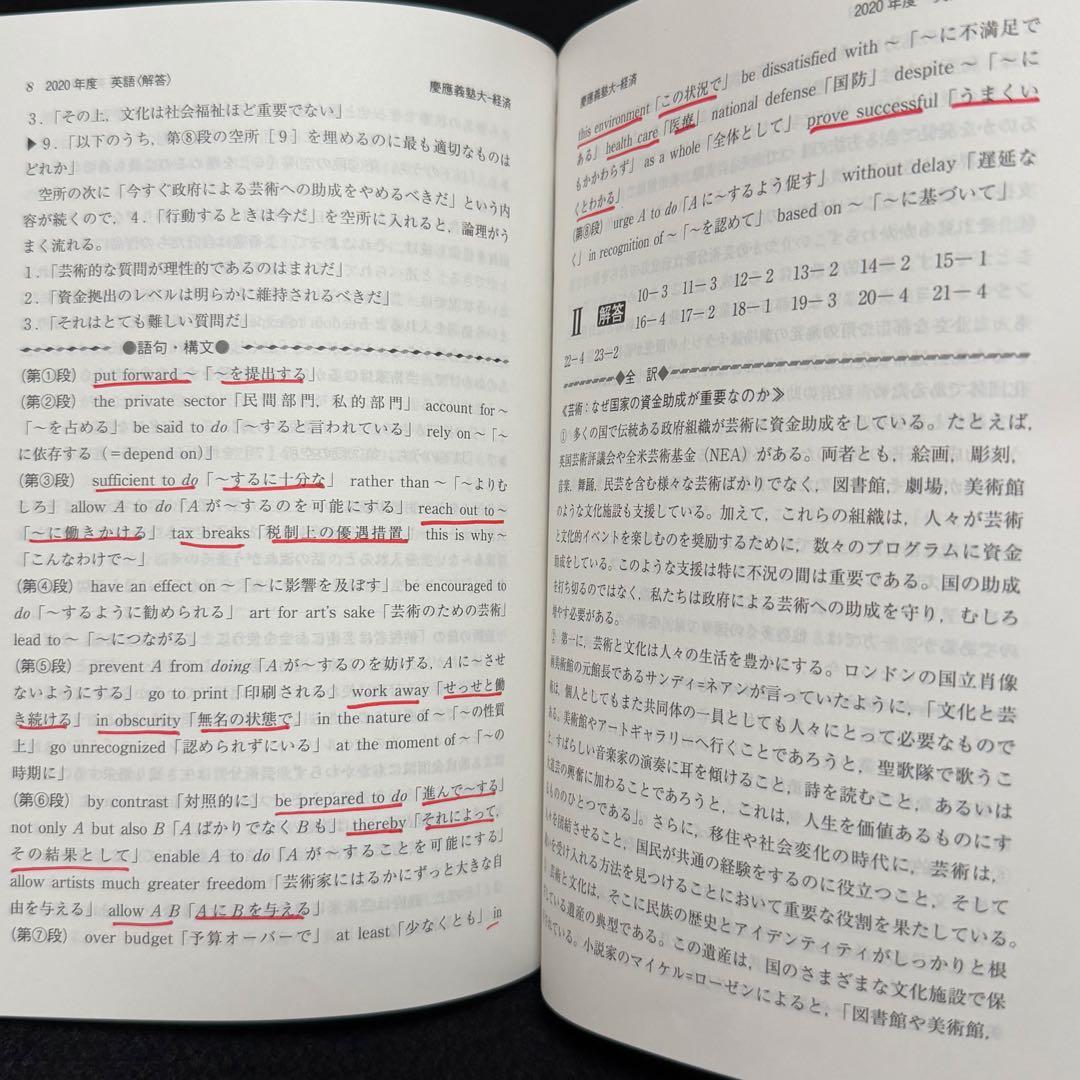 8 2020年度 英語〈解答〉 慶應義塾大-経済
3.「その上,文化は社会福祉ほど重要でない」
▶9.「以下のうち,第⑧段の空所[9]を埋めるのに最も適切なものは
どれか」
空所の次に「今すぐ政府による芸術への助成をやめるべきだ」という内
容が続くので,4.「行動するときは今だ」を空所に入れると,論理がう
まく流れる。
1.「芸術的な質問が理性的であるのはまれだ」
2.「資金拠出のレベルは明らかに維持されるべきだ」
3.「それはとても難しい質問だ」
●語句・構文●
(第①段) put forward~「~を提出する」
(第②段) the private sector「民間部門,私的部門」 account for~
「~を占める」 be said to do「~すると言われている」 rely on~「~
に依存する(=depend on)」
(第③段) sufficient to do「~するに十分な」 rather than~「~よりむ
しろ」 allow A to do「Aが~するのを可能にする」 reach out to~
「~に働きかける」 tax breaks「税制上の優遇措置」 this is why~
「こんなわけで~」
(第④段) have an effect on~「~に影響を及ぼす」 be encouraged to
do「~するように勧められる」 art for art's sake「芸術のための芸術」
lead to~「~につながる」
(第⑤段) prevent A from doing「Aが~するのを妨げる,Aに~させ
ないようにする」 go to print「印刷される」 work away「せっせと働
き続ける」 in obscurity「無名の状態で」 in the nature of~「~の性質
上」 go unrecognized「認められずにいる」 at the moment of~「~の
時期に」
(第⑥段) by contrast「対照的に」 be prepared to do「進んで~する」
not only A but also B「AばかりでなくBも」 thereby「それによって,
その結果として」 enable A to do「Aが~することを可能にする」
allow artists much greater freedom「芸術家にはるかにずっと大きな自
由を与える」 allow A B「AにBを与える」
(第⑦段) over budget「予算オーバーで」 at least「少なくとも」 in
2020年度
慶應義塾大-経済
this environment「この状況で」 be dissatisfied with~「~に不満足で
ある」 health care「医療」 national defense「国防」 despite~「~に
もかかわらず」 as a whole「全体として」 prove successful「うまくい
くとわかる」
(第⑧段) urge A to do「Aに~するよう促す」 without delay「遅延な
く」 in recognition of~「~を認めて」 based on~「~に基づいて」
Ⅱ 解答 10-3 11-3 12-2 13-2 14-2 15-1
16-4 17-2 18-1 19-3 20-4 21-4
22-4 23-2
◆全 訳◆
≪芸術:なぜ国家の資金助成が重要なのか≫
① 多くの国で伝統ある政府組織が芸術に資金助成をしている。たとえば,
英国芸術評議会や全米芸術基金(NEA)がある。両者とも,絵画,彫刻,
音楽,舞踊,民芸を含む様々な芸術ばかりでなく,図書館,劇場,美術館
のような文化施設も支援している。加えて,これらの組織は,人々が芸術
と文化的イベントを楽しむのを奨励するために,数々のプログラムに資金
助成をしている。このような支援は特に不況の間は重要である。国の助成
を打ち切るのではなく,私たちは政府による芸術への助成を守り,むしろ
増やす必要がある。
② 第一に,芸術と文化は人々の生活を豊かにする。ロンドンの国立肖像
画美術館の元館長であるサンディ=ネアンが言っていたように,「文化と芸
術は,個人としてもまた共同体の一員としても人々にとって必要なもので
ある。美術館やアートギャラリーへ行くことであろうと,聖歌隊で歌うこ
と,すばらしい音楽家の演奏に耳を傾けること,詩を読むこと,あるいは
大道芸の興奮に加わることであろうと,これは,人生を価値あるものにす
るもののひとつである」。さらに,移住や社会変化の時代に,芸術は,
人々を団結させること,国民が共通の経験をするのに役立つこと,そして
いを受け入れる方法を見つけることにおいて重要な役割を果たしている。
芸術と文化は,そこに民族の歴史とアイデンティティがしっかりと根
ている遺産の典型である。この遺産は,国のさまざまな文化施設で保
されている。小説家のマイケル=ローゼンによると,「図書館や美術館,